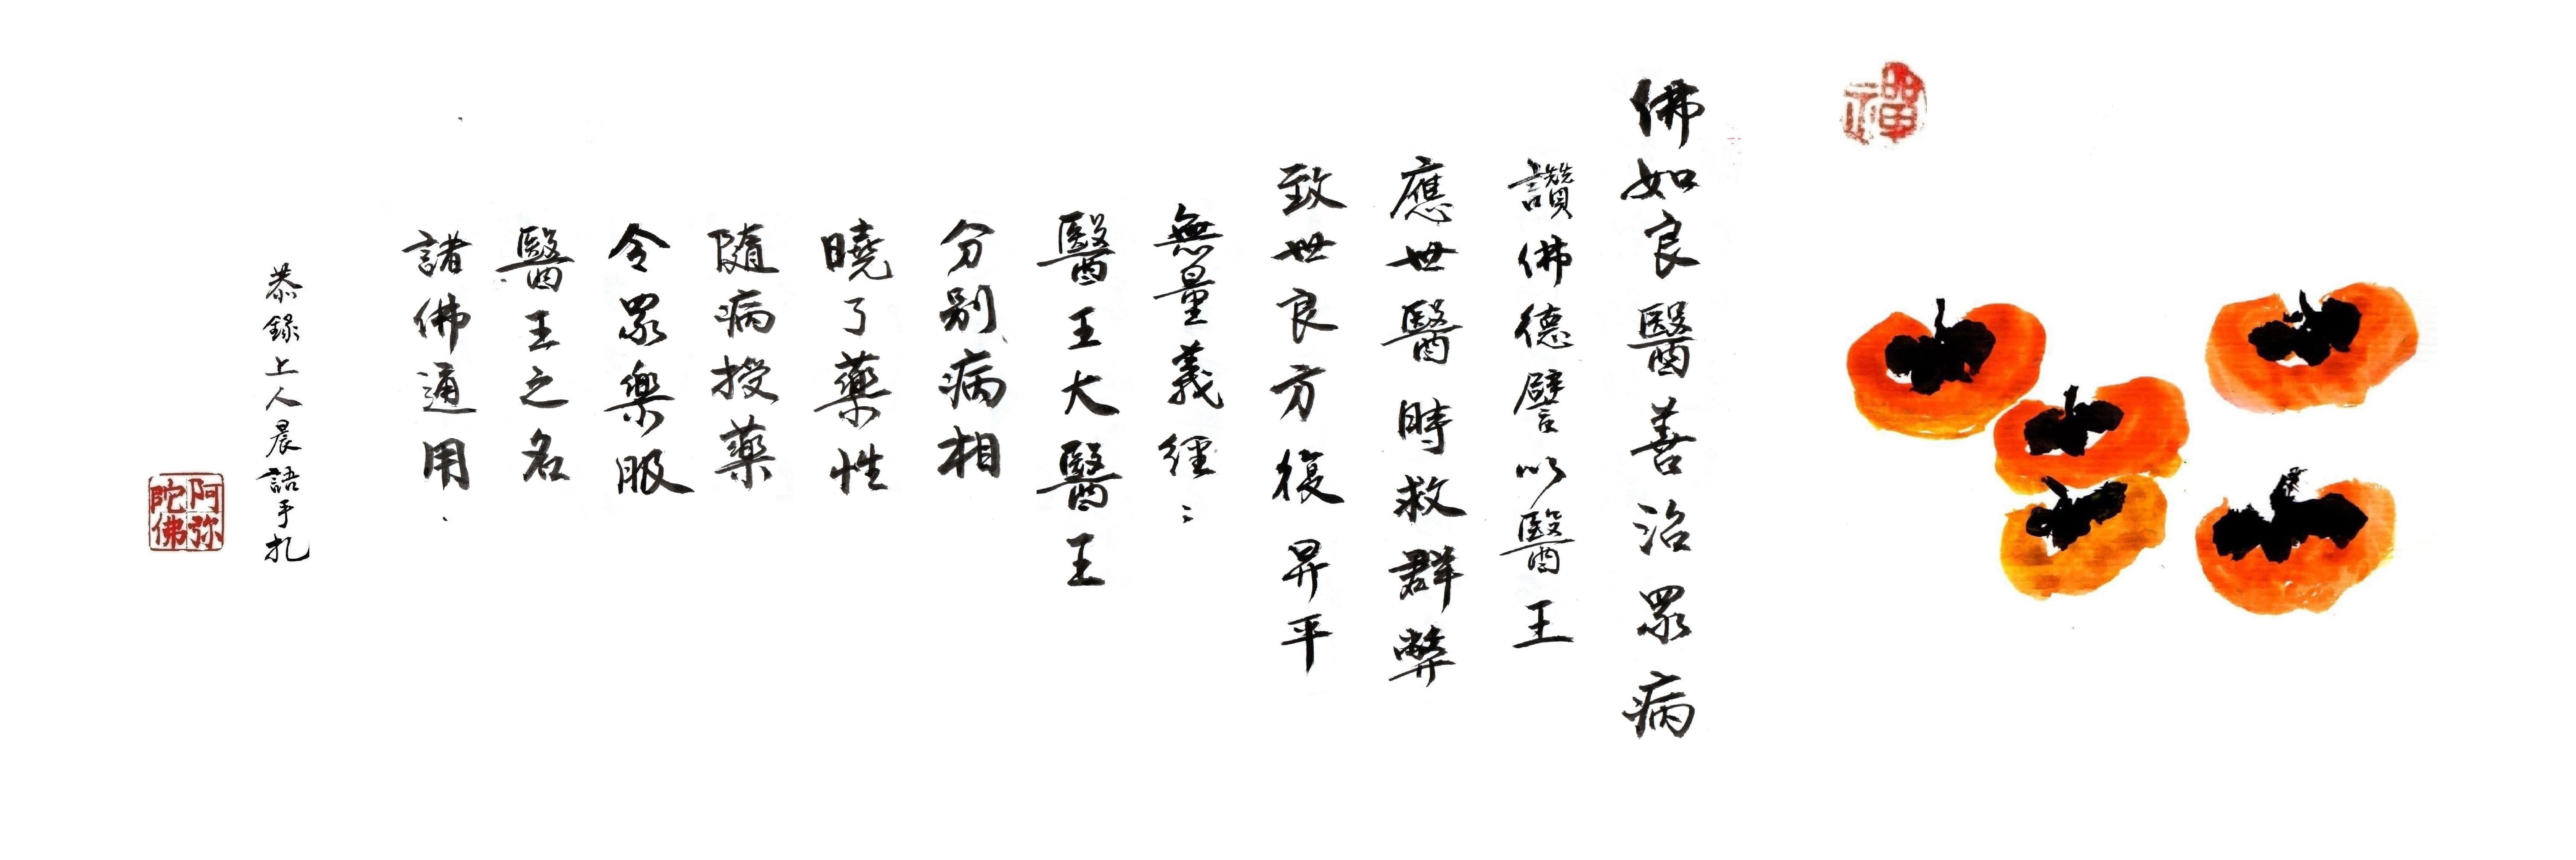 禪
佛如良醫善治眾病
讚佛德譬以醫王
應世醫時救群弊
致世良方復昇平
無量義經：
醫王大醫王
分別病相
曉了藥性
隨病授藥
令眾樂服
醫王之名
諸佛通用.
恭錄上人晨語手扎
阿弥陀佛